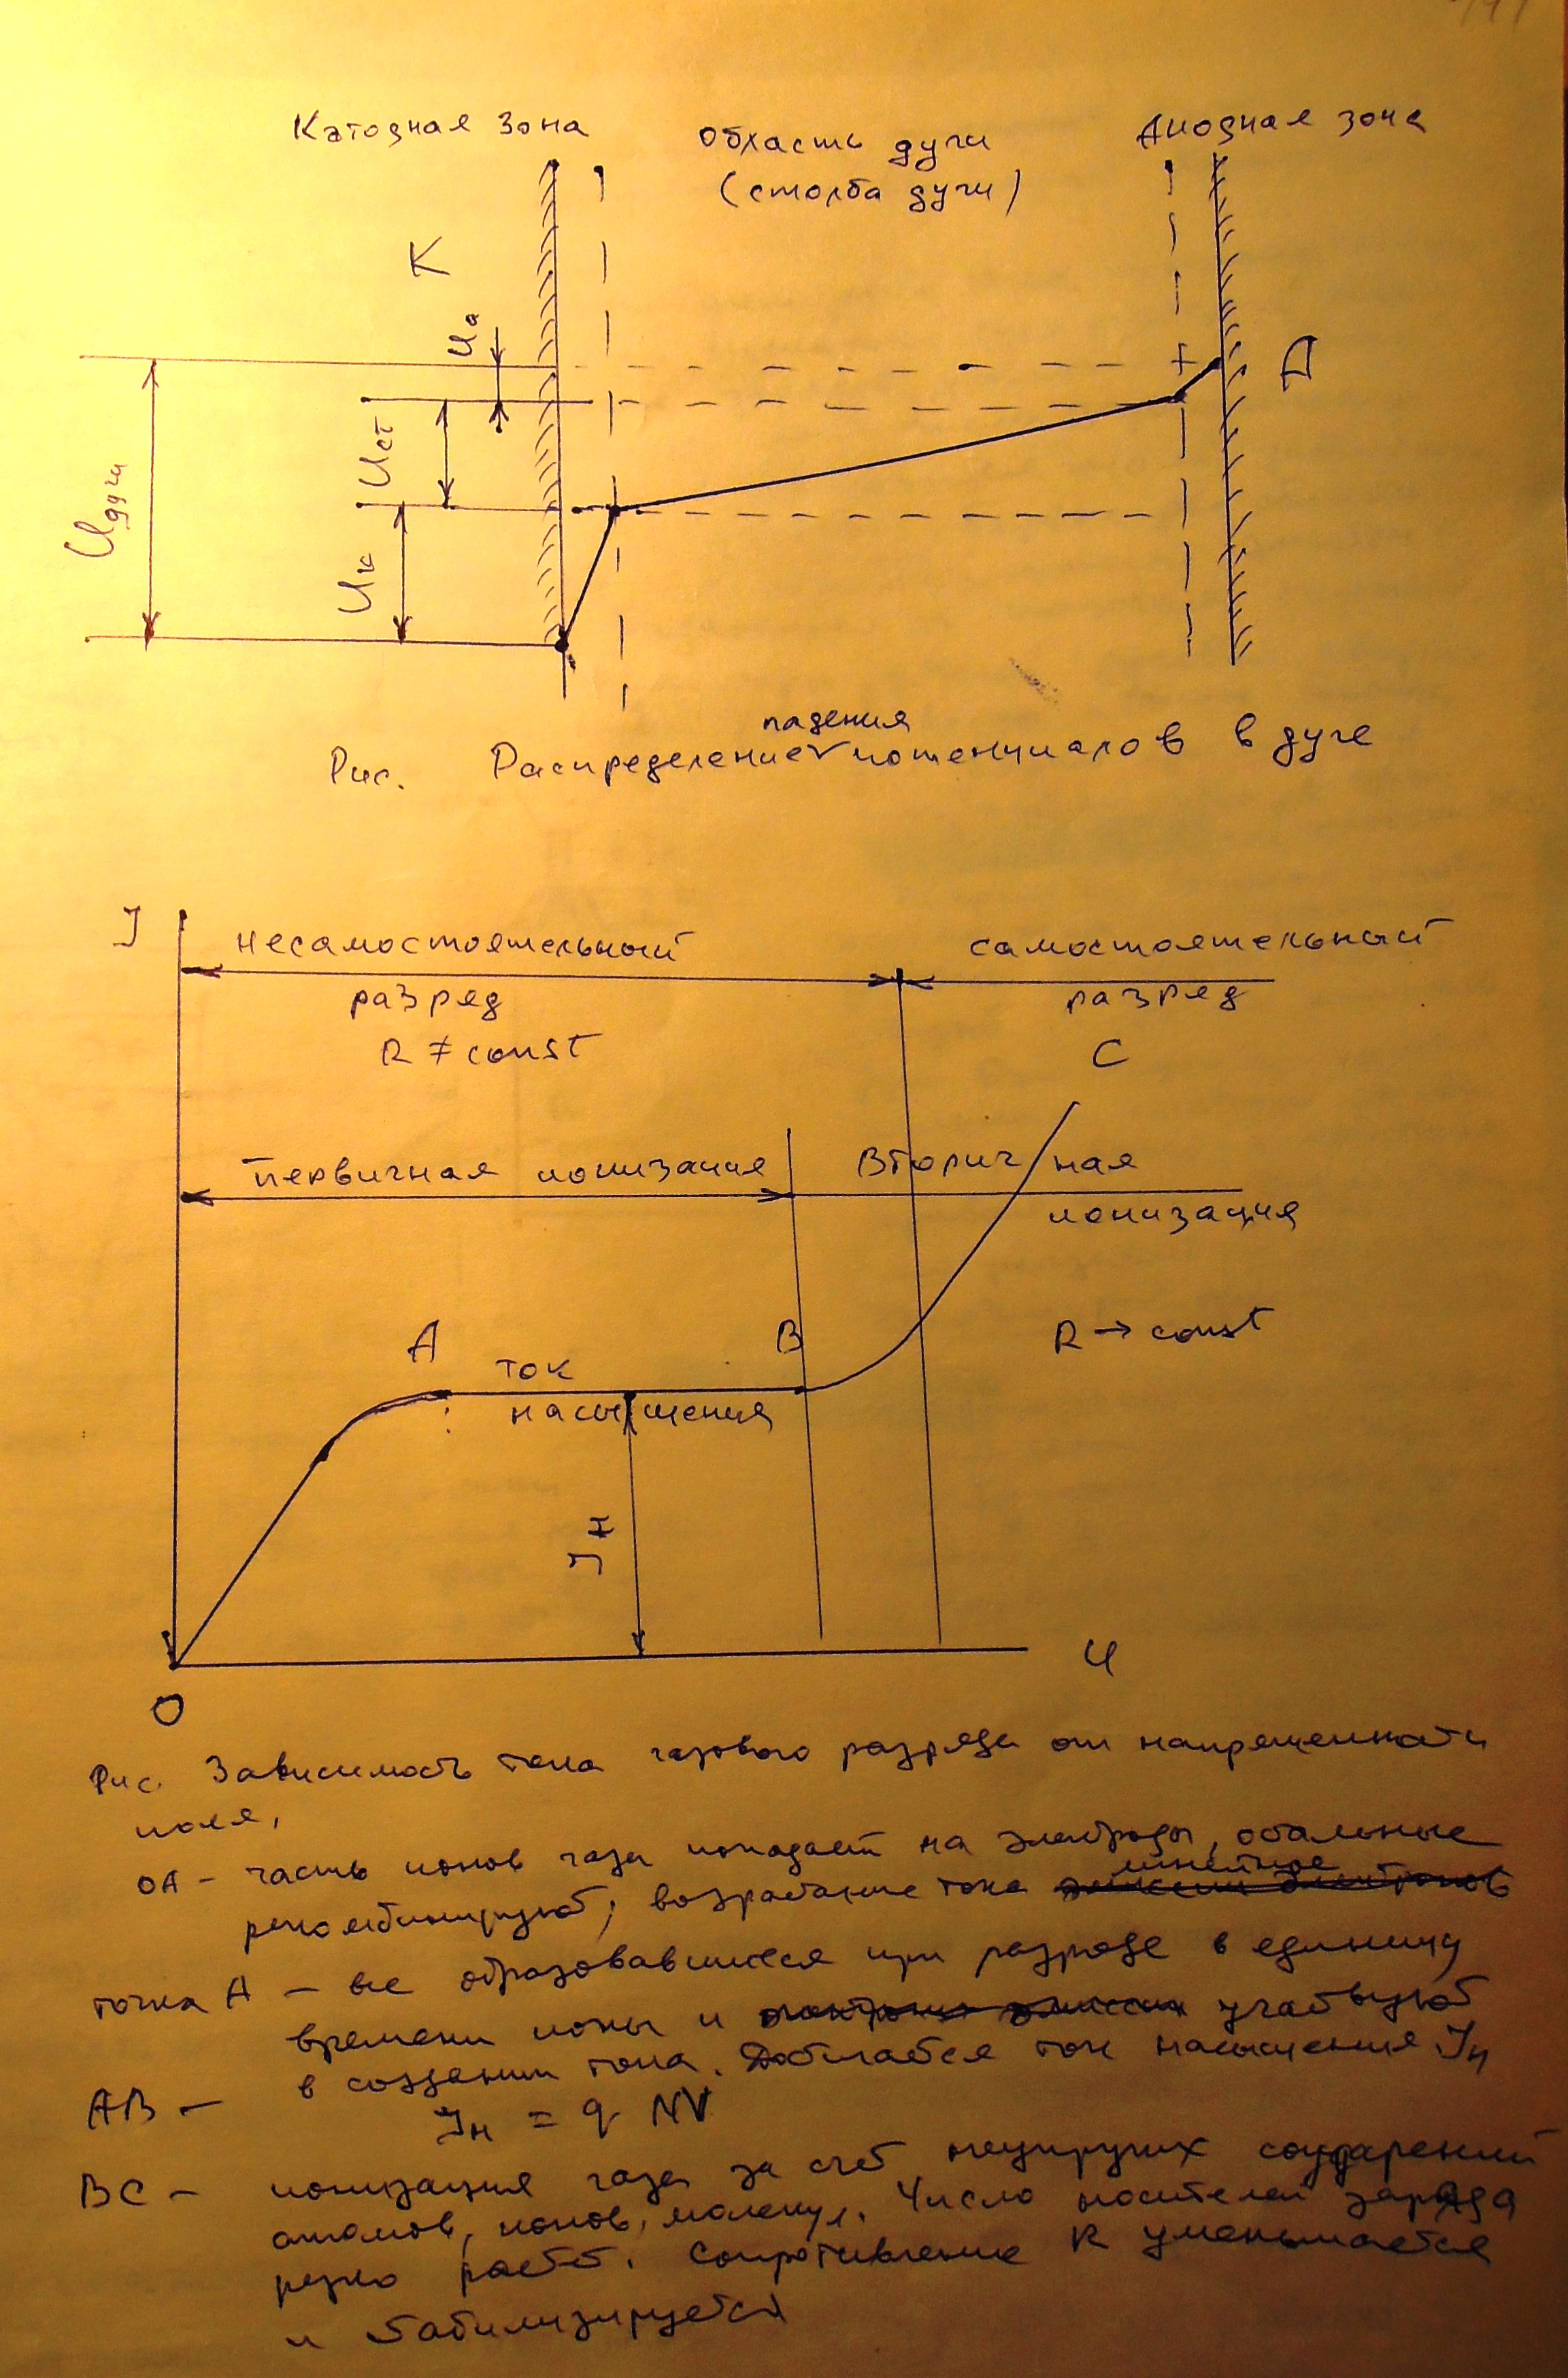 Катодная зона
Область дуги
(столба дуги)
Анодная зона
К
Uа
Uст
Uк
Uдуги
А
+
падения
Рис. Распределение потенциалов в дуге
J
несамостоятельный
разряд
R ≠ const
самостоятельный
разряд
C
первичная ионизация
Вторичная
ионизация
A
ток
насыщения
B
R → const
Jн
U
O
Рис. Зависимость тока газового разряда от напряженности
поля,
OA – часть ионов газа попадает на электроды, остальные
линейное
рекомбинируют; возрастание тока
точка A – все образовавшиеся при разряде в единицу
времени ионы и участвуют
в создании тока. Достигается ток насыщения Jн
AB –
Jн = q NV
BC – ионизация газа за счет неупругих соударений
атомов, ионов, молекул. Число носителей заряда
резко растет. Сопротивление R уменьшается
и стабилизируется